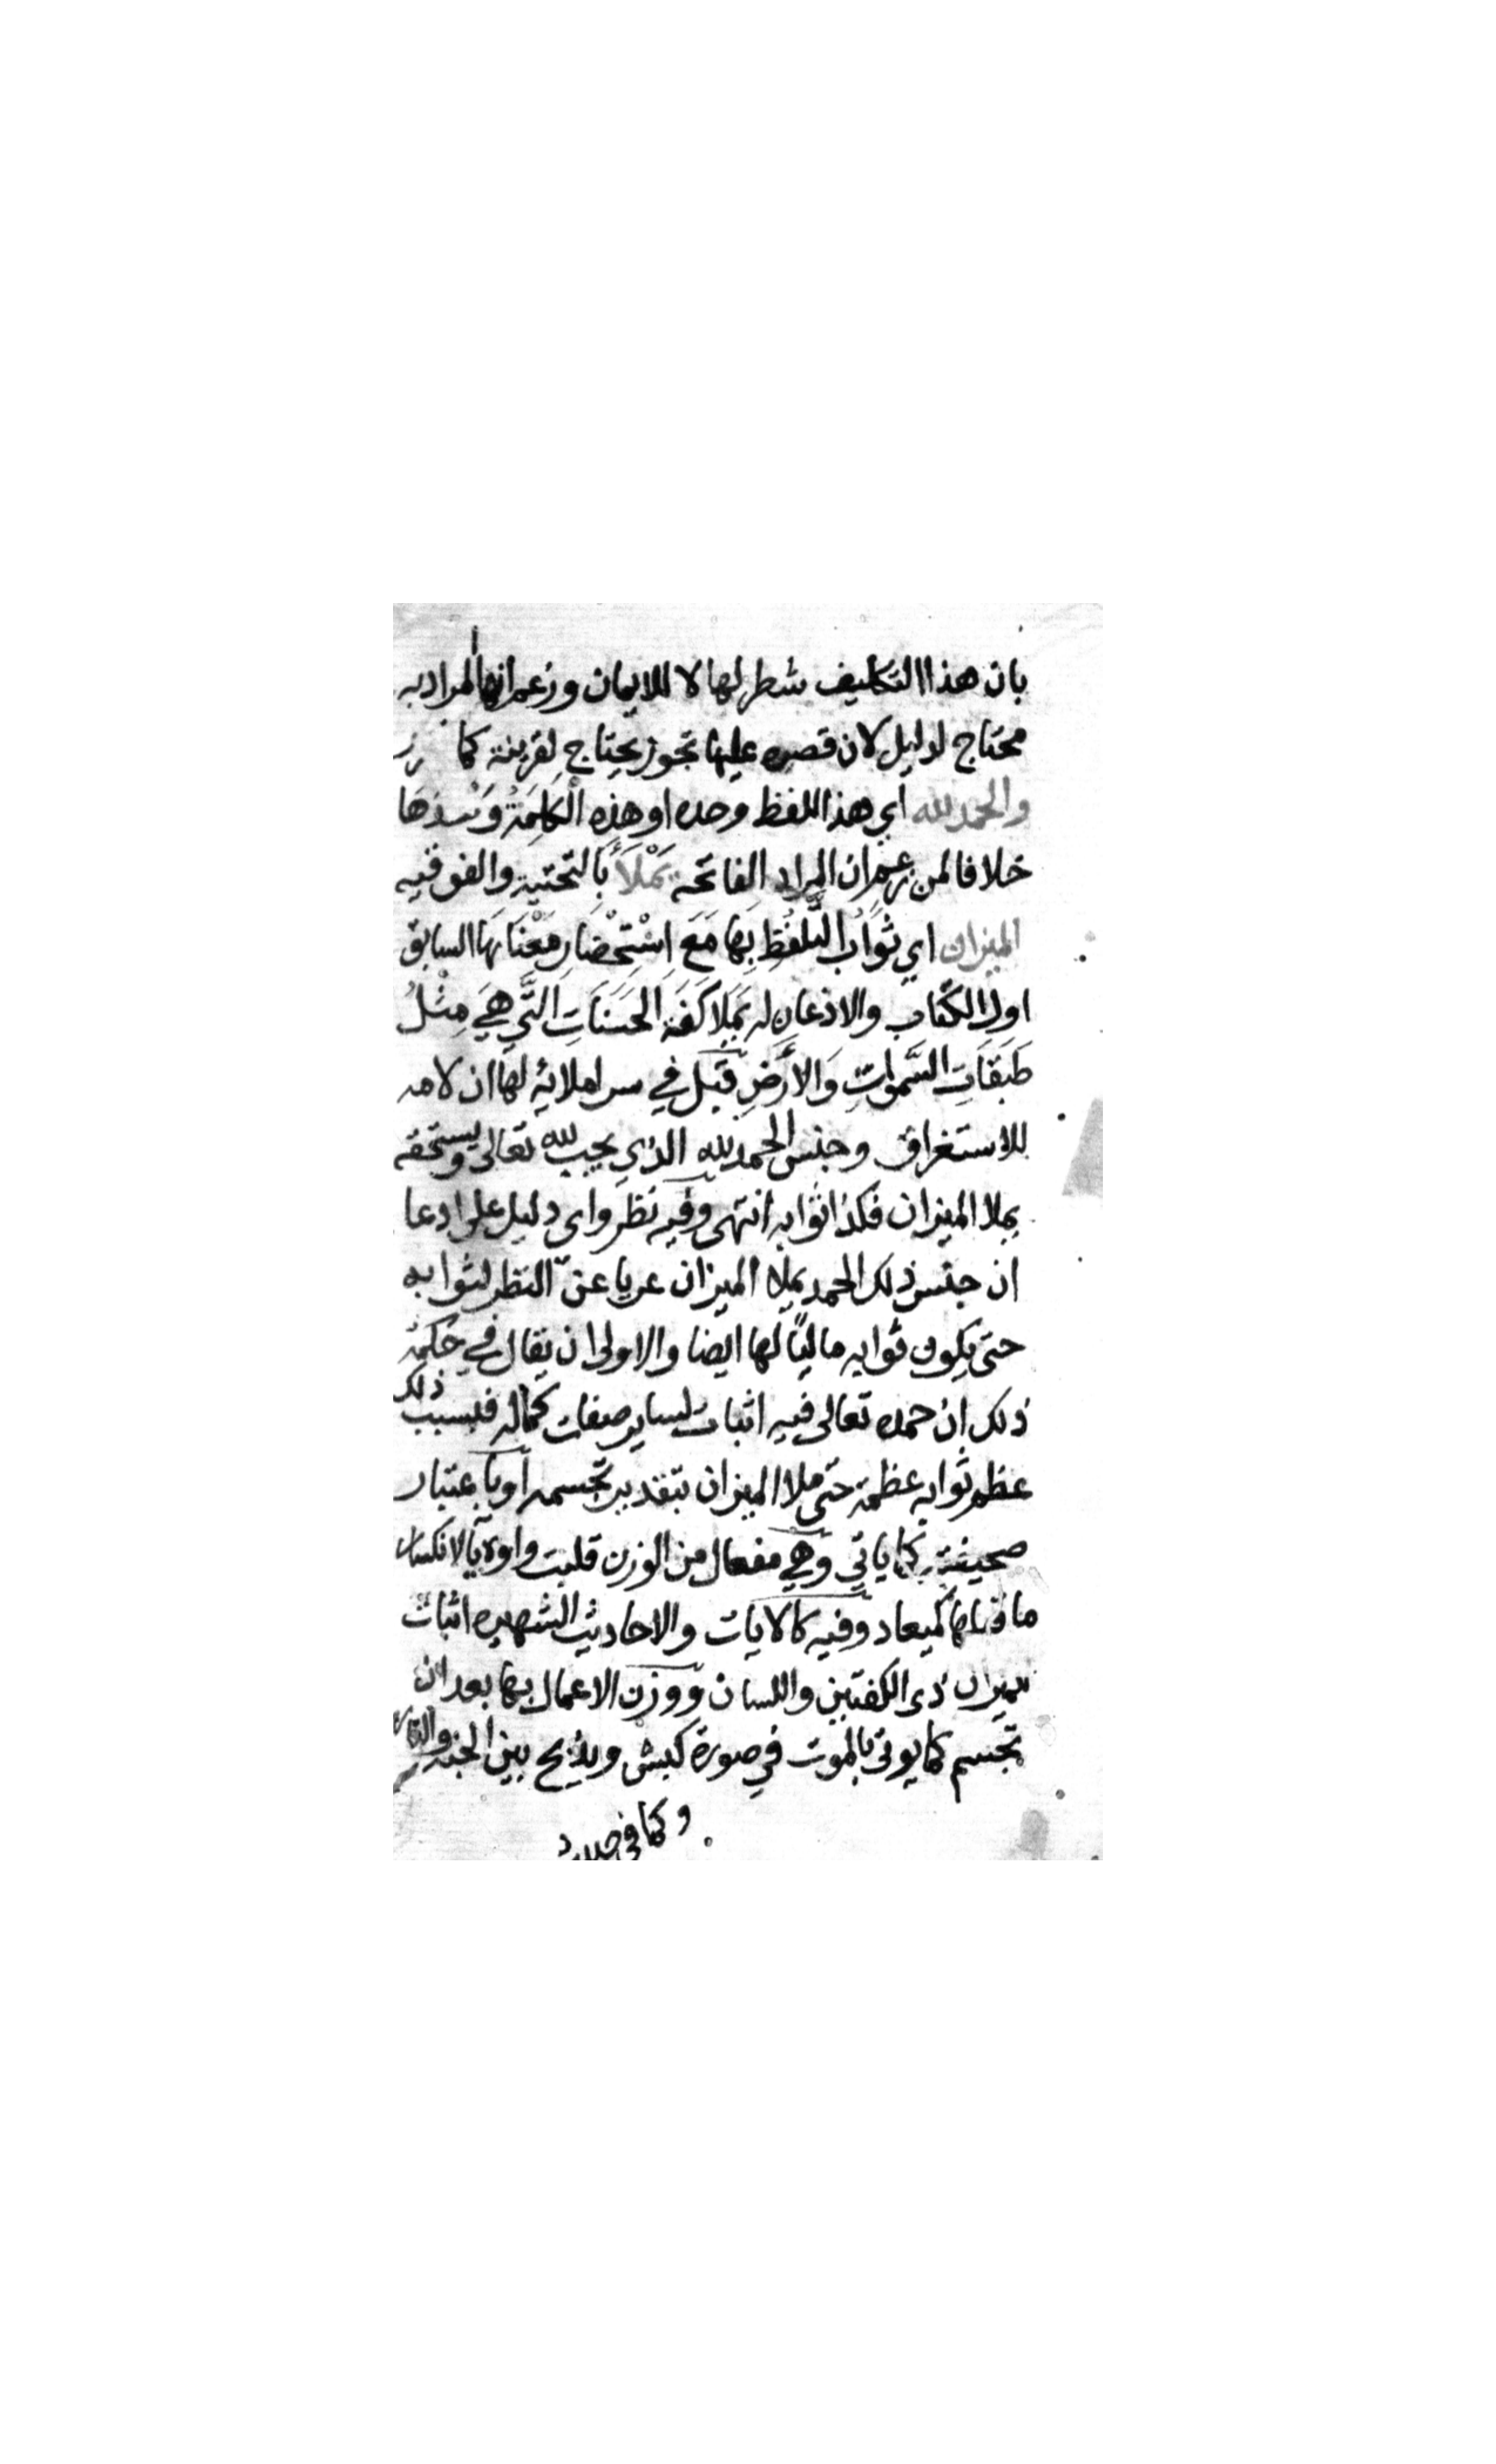 بان هذا التكليف شطر لها لا للايمان وزعم انها المراد به
محتاج لدليل لان قصره عليها تجوز يحتاج لقرينة كما
والحمد لله أي هذا اللفظ وحده او هذه الْكَلِمَةُ وَحْدَهَا
خلافا لمن زعم ان المراد الفاتحه يَمْلَأُ بالتحتية والفوقيه
الميزان اي ثَوَابُ التَّلَفُّظِ بِهَا مَعَ اسْتِحْضَارِ مَعْنَاهَا السابق
اول الكتاب والاذعان له يَمْلَا كَفَةَ الحَسَنَاتِ الَّتِي هِيَ مِثْلُ
طَبَقَاتِ السَّمواتِ وَالأَرْضِ قيل في سر املائه لها ان لامه
للاستغراق وجنس الحمد لله الذي يجب لله تعالى ويستحقه
يملا الميزان فكذا ثوابه انتهى وفيه نظر واى دليل على ادعا
ان جنس ذلك الحمد يملا الميزان عريا عن النظر لثوابه
حتى يكون ثوابه ماليًا لها ايضا والاولى ان يقال في حكمة
ذلك ان حمده تعالى فيه اثبات لساير صفات كماله فبسبب ذلك
عظم ثوابه عظمة حتى ملا الميزان بتقدير تجسمه أو باعتبار
صحيفته كما ياتي وهي مفعال من الوزن قلبت واوه يآ لانكسار
ما قبلها كميعاد وفيه كالايات والاحاديث الشهيره اثبات
الميزان ذى الكفتين واللسان ووزن الاعمال بها بعد ان
تجسم كما يوتى بالموت في صورة كبش ويذبح بين الجنه والنار
وكما في